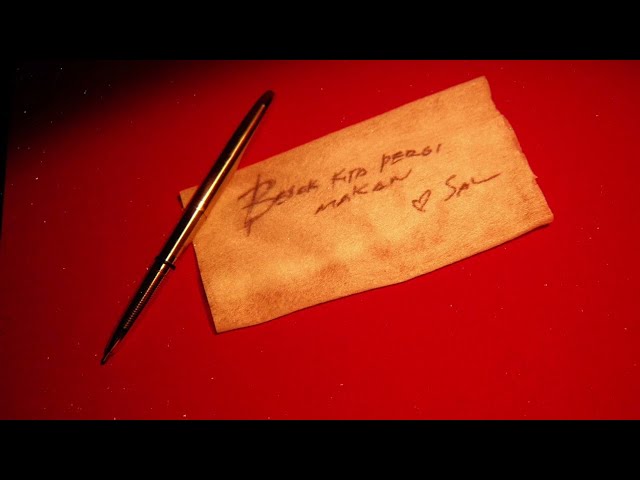 BESOK KITA PERGI
MAKAN
♡ SAL